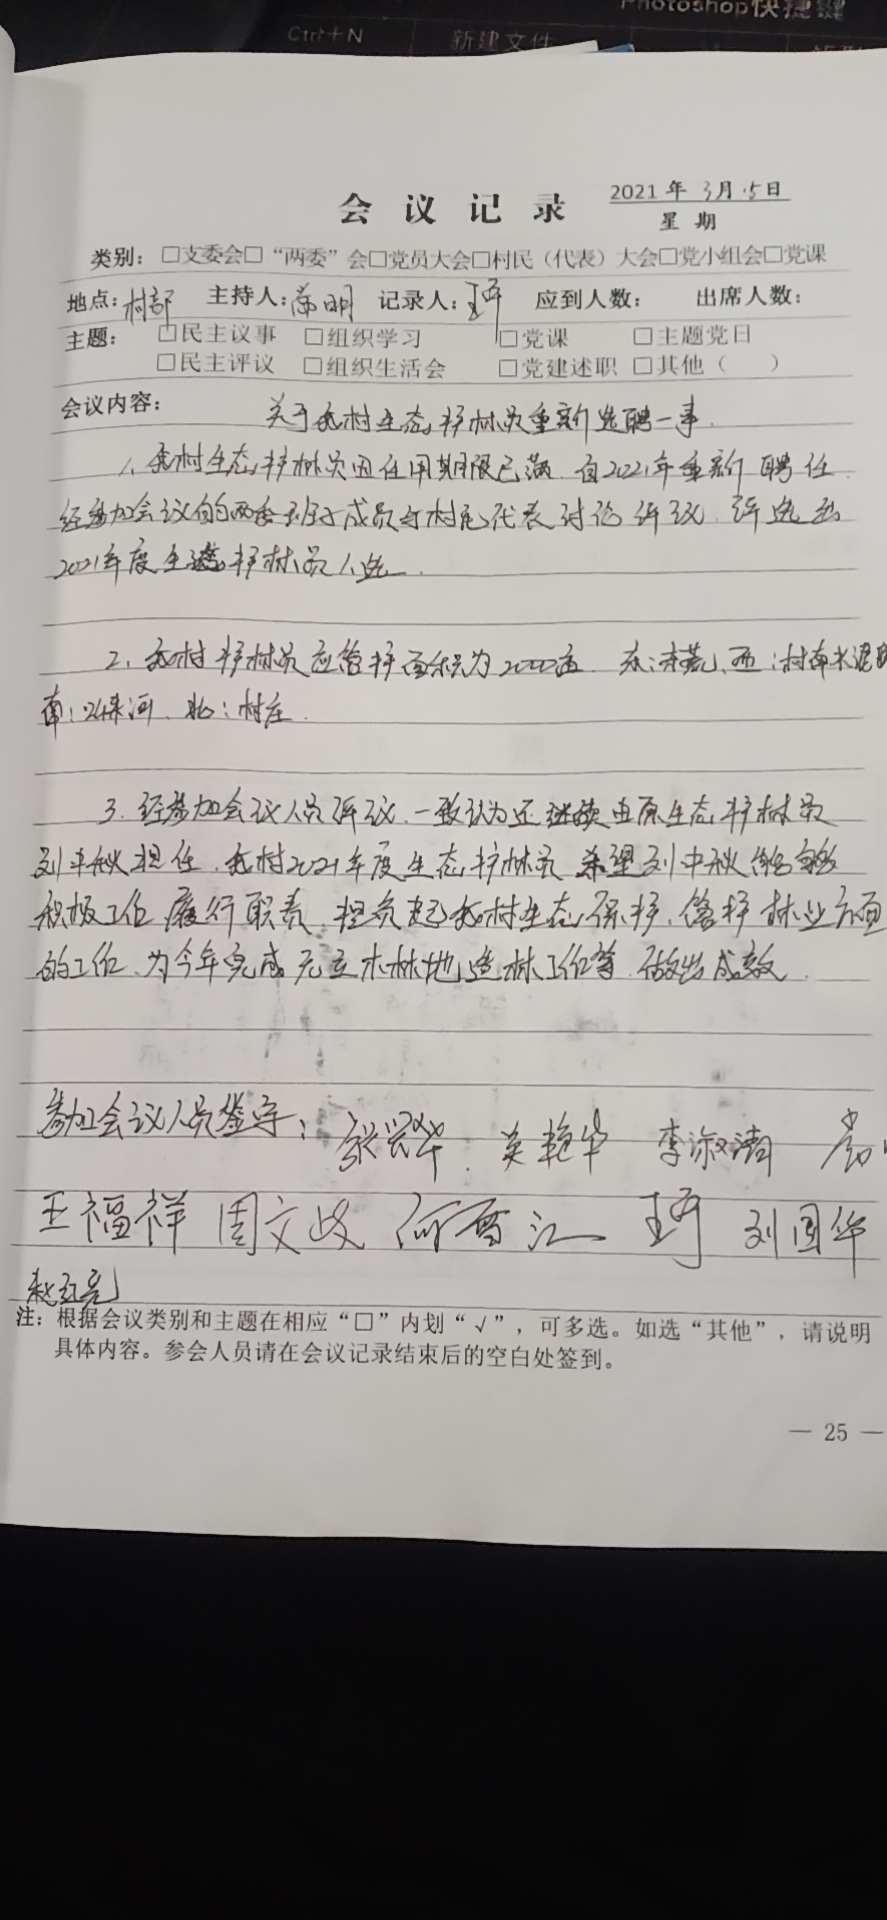 Photoshop快捷键
Ctrl+N 新建文件
会议记录 2021年3月5日
星期
类别：□支委会□“两委”会□党员大会□村民（代表）大会□党小组会□党课
地点：村部 主持人： 明 记录人：王 应到人数： 出席人数：
主题：□民主议事 □组织学习 □党课 □主题党日
□民主评议 □组织生活会 □党建述职 □其他（ ）
会议内容： 关于我村生态护林员重新选聘一事.
1、我村生态护林员因任用期限已满.自2021年重新聘任.
经参加会议的两委班子成员与村民代表讨论评议.评选出
2021年度生态护林员人选.
2、我村护林员应管护面积为2000亩.东： 荒、西：村南水泥
南： 河、北：村庄.
3.经参加会议人员评议.一致认为还继续由原生态护林员
刘中秋担任.我村2021年度生态护林员.希望刘中秋能够
积极工作.履行职责.担负起我村生态保护、管护林业方面
的工作、为今年完成无立木林地造林工作等.做出成效.
参加会议人员签字：张兴华.吴艳华 李淑清
王福祥 周文 何 江 王 刘国华
赵红亮
注：根据会议类别和主题在相应“□”内划“√”，可多选。如选“其他”，请说明
具体内容。参会人员请在会议记录结束后的空白处签到。
— 25 —